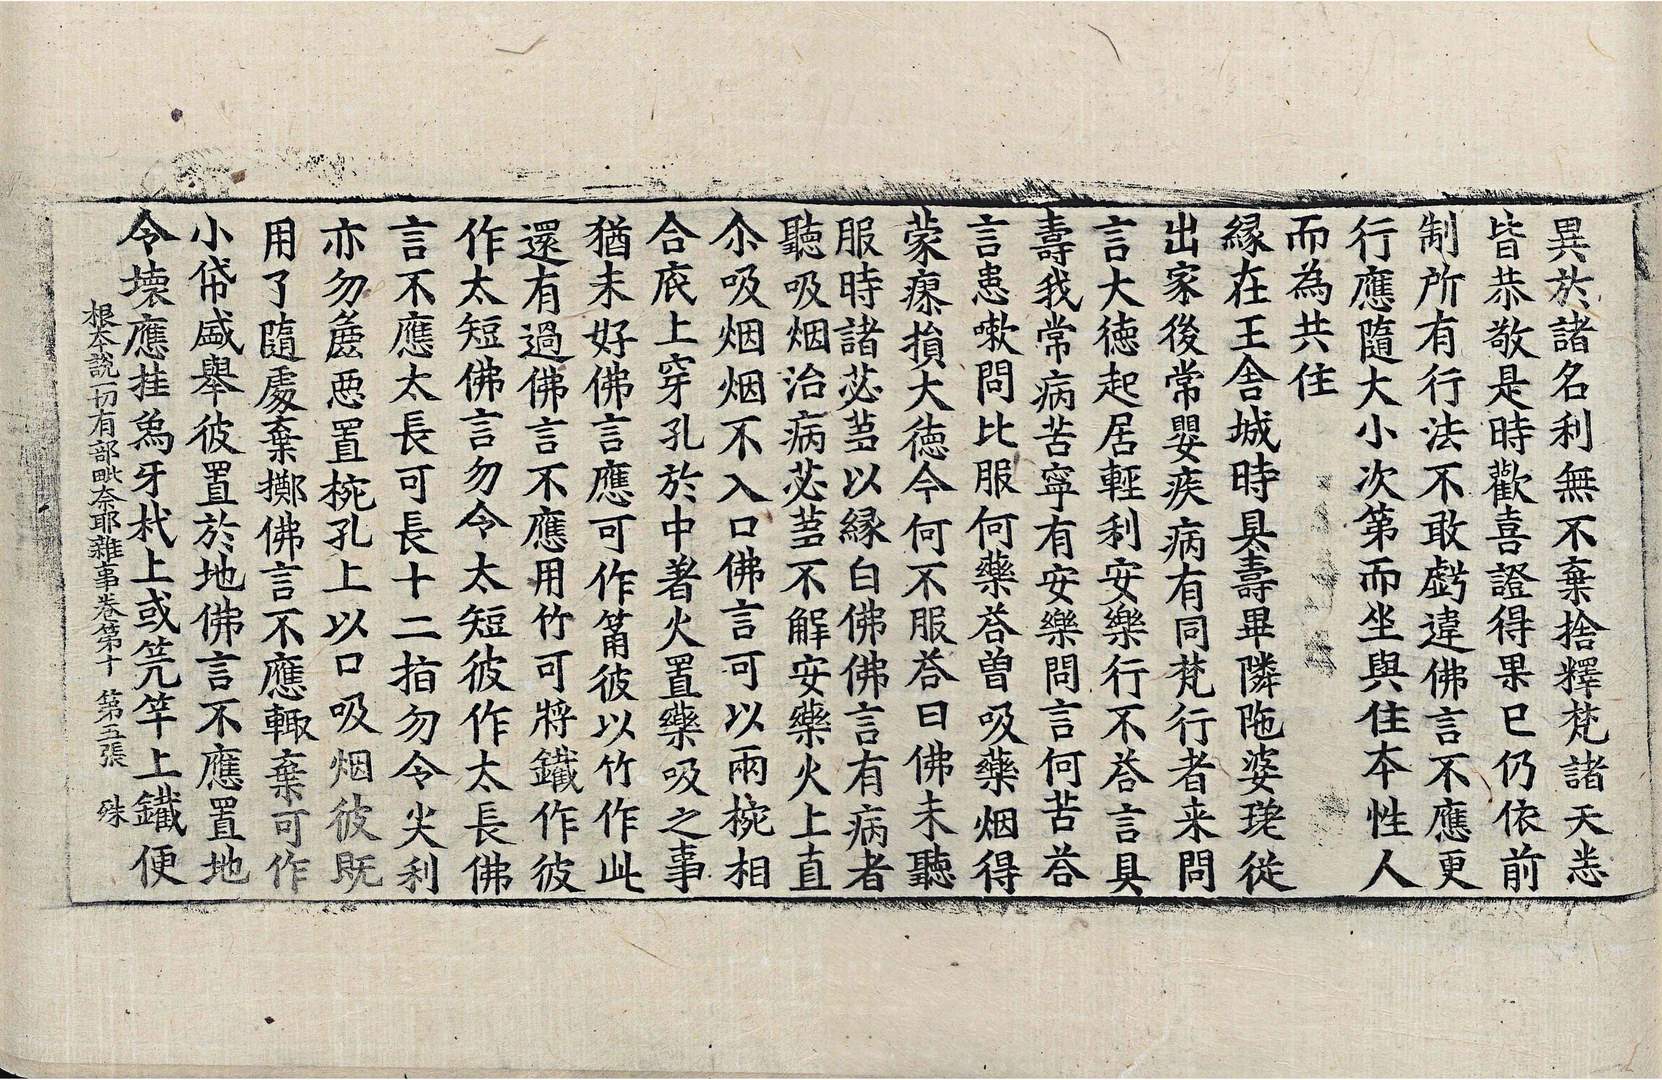 異於諸名利無不棄捨釋梵諸天悉
皆恭敬是時歡喜證得果已仍依前
制所有行法不敢虧違佛言不應更
行應隨大小次第而坐與住本性人
而為共住
緣在王舍城時具壽畢隣陁婆蹉從
出家後常嬰疾病有同梵行者来問
言大德起居輕利安樂行不荅言具
壽我常病苦寧有安樂問言何苦荅
言患嗽問比服何藥荅曽吸藥烟得
蒙瘳損大德今何不服荅曰佛未聽
服時諸苾芻以緣白佛佛言有病者
聽吸烟治病苾芻不解安藥火上直
尒吸烟烟不入口佛言可以兩椀相
合底上穿孔於中著火置藥吸之事
猶未好佛言應可作筩彼以竹作此
還有過佛言不應用竹可將鐵作彼
作太短佛言勿令太短彼作太長佛
言不應太長可長十二指勿令尖利
亦勿麁惡置椀孔上以口吸烟彼既
用了隨處棄擲佛言不應輙棄可作
小帒盛舉彼置於地佛言不應置地
令壞應挂烏牙杙上或笐竿上鐵便
根本說一切有部毗奈耶雜事卷第十 第五張 殊